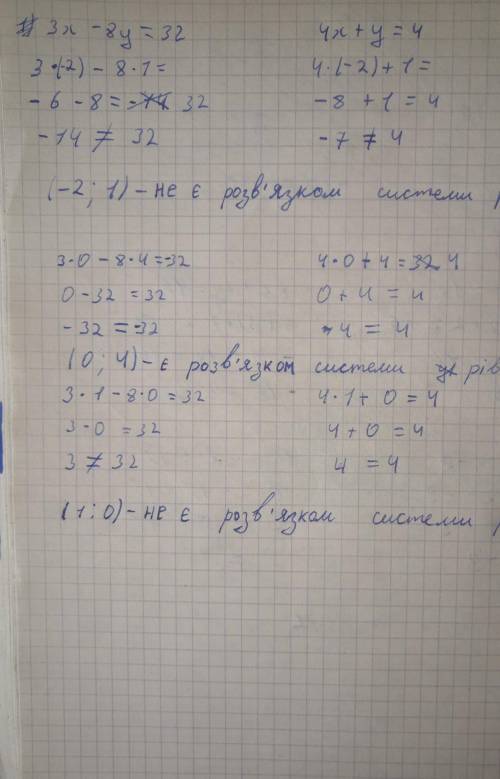 1) 3x - 8y = 32 4x + y = 4
3·(-2) - 8·1 = 4·(-2) + 1 =
-6 - 8 = 32 -8 + 1 = 4
-14 ≠ 32 -7 ≠ 4
(-2; 1) - не є розв'язком системи
3·0 - 8·4 = -32 4·0 + 4 = 4
0 - 32 = 32 0 + 4 = 4
-32 = -32 4 = 4
(0; 4) - є розв'язком системи рів
3·1 - 8·0 = 32 4·1 + 0 = 4
3 - 0 = 32 4 + 0 = 4
3 ≠ 32 4 = 4
(1; 0) - не є розв'язком системи